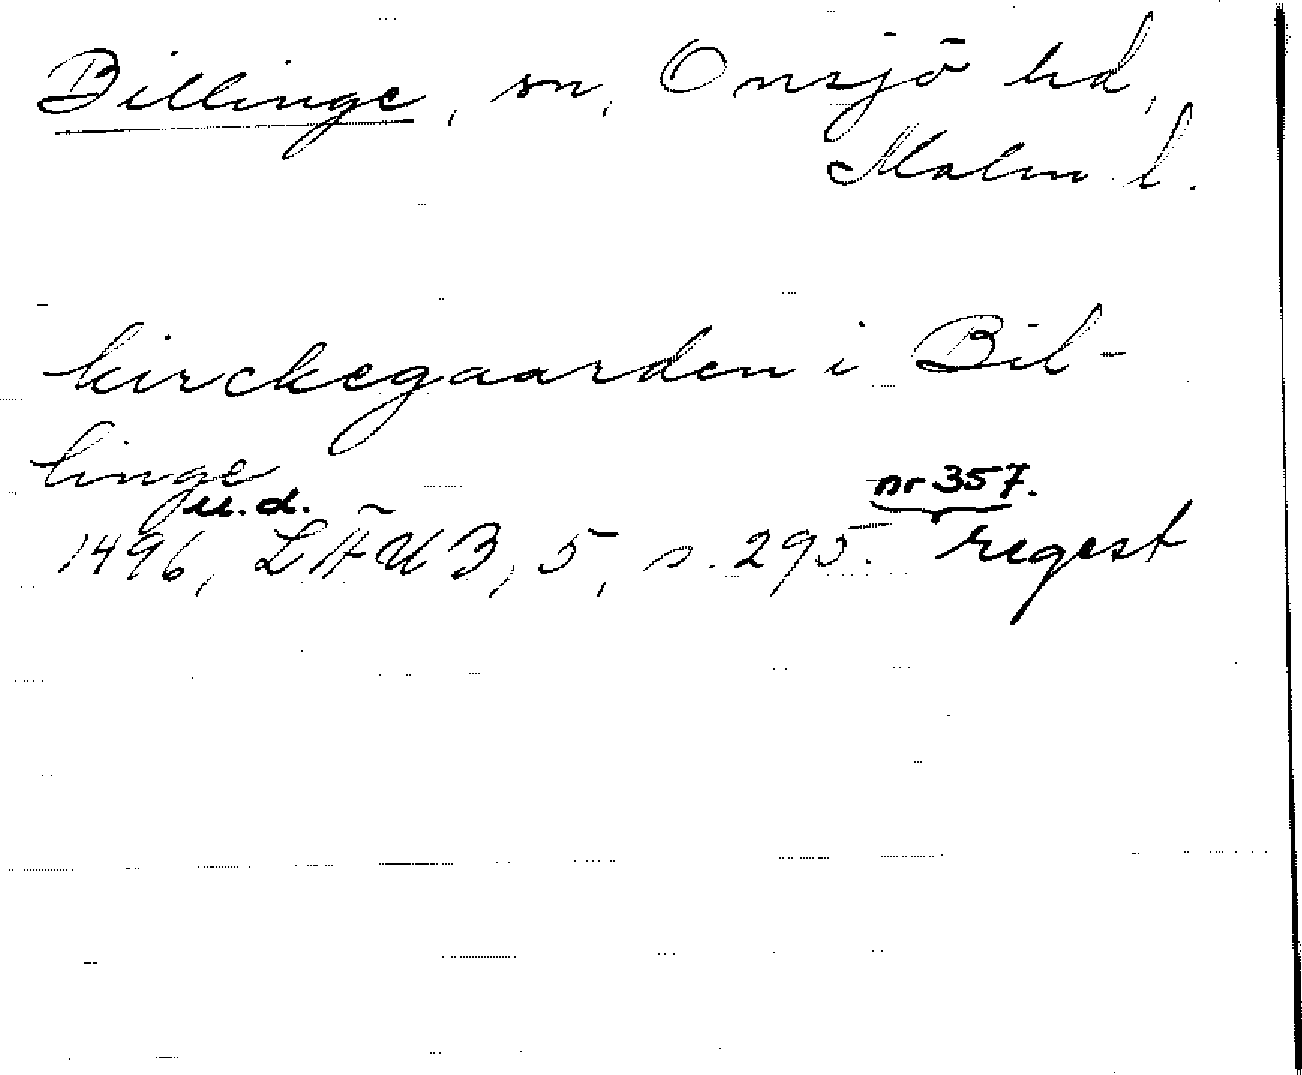 Billinge, sn, Onsjö hd,
Malm. l.
kirckegaarden i Bil-
linge
u.d. nr 357.
1496, LÄUB, 5, s. 295. regest